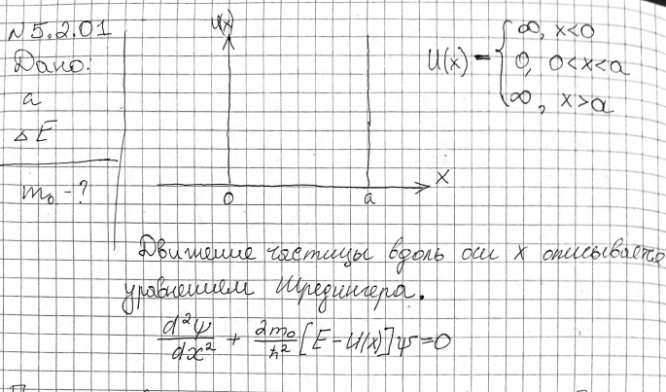 N 5.2.01
Дано:
a
ΔE
m₀ - ?
U(x)
0
a
x
U(x) = { ∞, x<0
0, 0<x<a
∞, x>a
Движение частицы вдоль оси x описывается
уравнением Шредингера.
d²ψ/dx² + 2m₀/ħ² [E - U(x)]ψ = 0